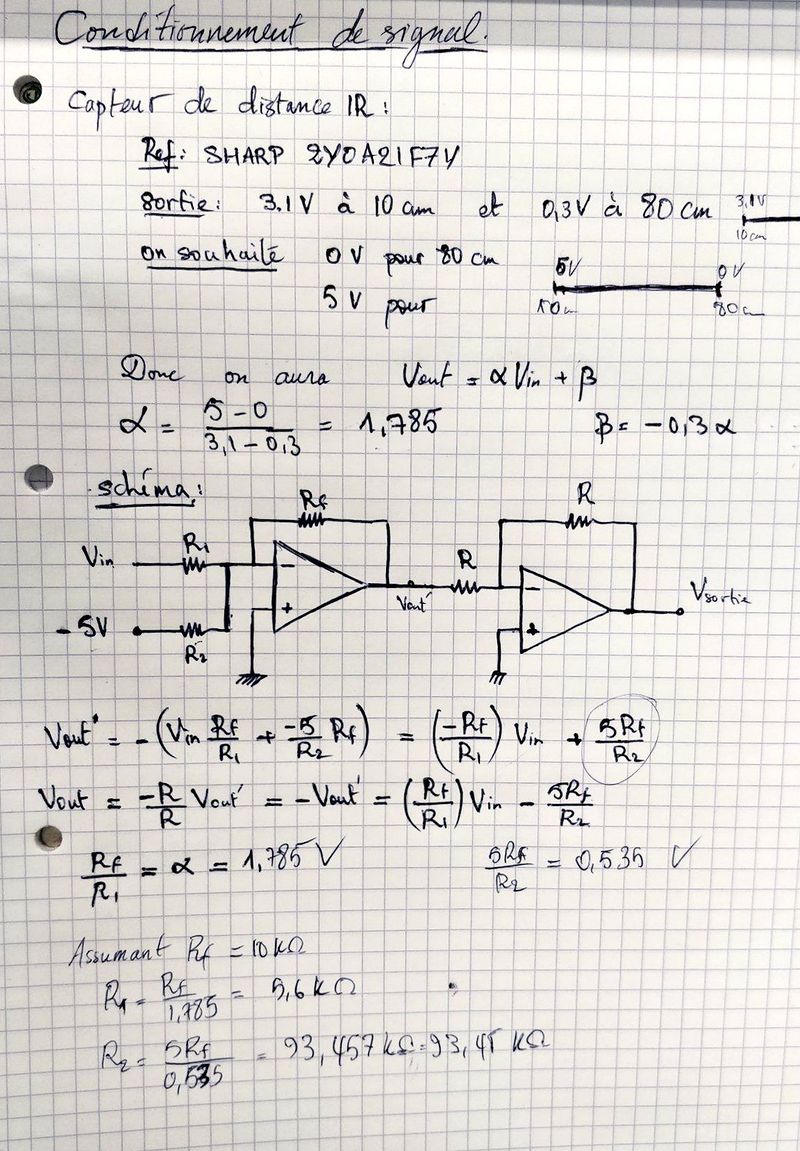 Conditionnement de signal.
Capteur de distance IR :
Ref: SHARP 2Y0A21F7Y
Sortie: 3.1V à 10 cm et 0,3V à 80 cm
3,1V
10 cm
on souhaité 0 V pour 80 cm
5 V pour
5V 0V
10 cm 80 cm
Donc on aura Vout = α Vin + β
α = (5 - 0)/(3,1 - 0,3) = 1,785 β = -0,3 α
schéma :
Rf R
Vin R1 R
- +
Vout' - + Vsortie
-5V R2
Vout' = -(Vin Rf/R1 + -5/R2 Rf) = (-Rf/R1) Vin + 5Rf/R2
Vout = -R/R Vout' = -Vout' = (Rf/R1) Vin - 5Rf/R2
Rf/R1 = α = 1,785 V 5Rf/R2 = 0,535 V
Assumant Rf = 10 kΩ
R1 = Rf/1,785 = 5,6 kΩ
R2 = 5Rf/0,535 = 93,457 kΩ = 93,45 kΩ